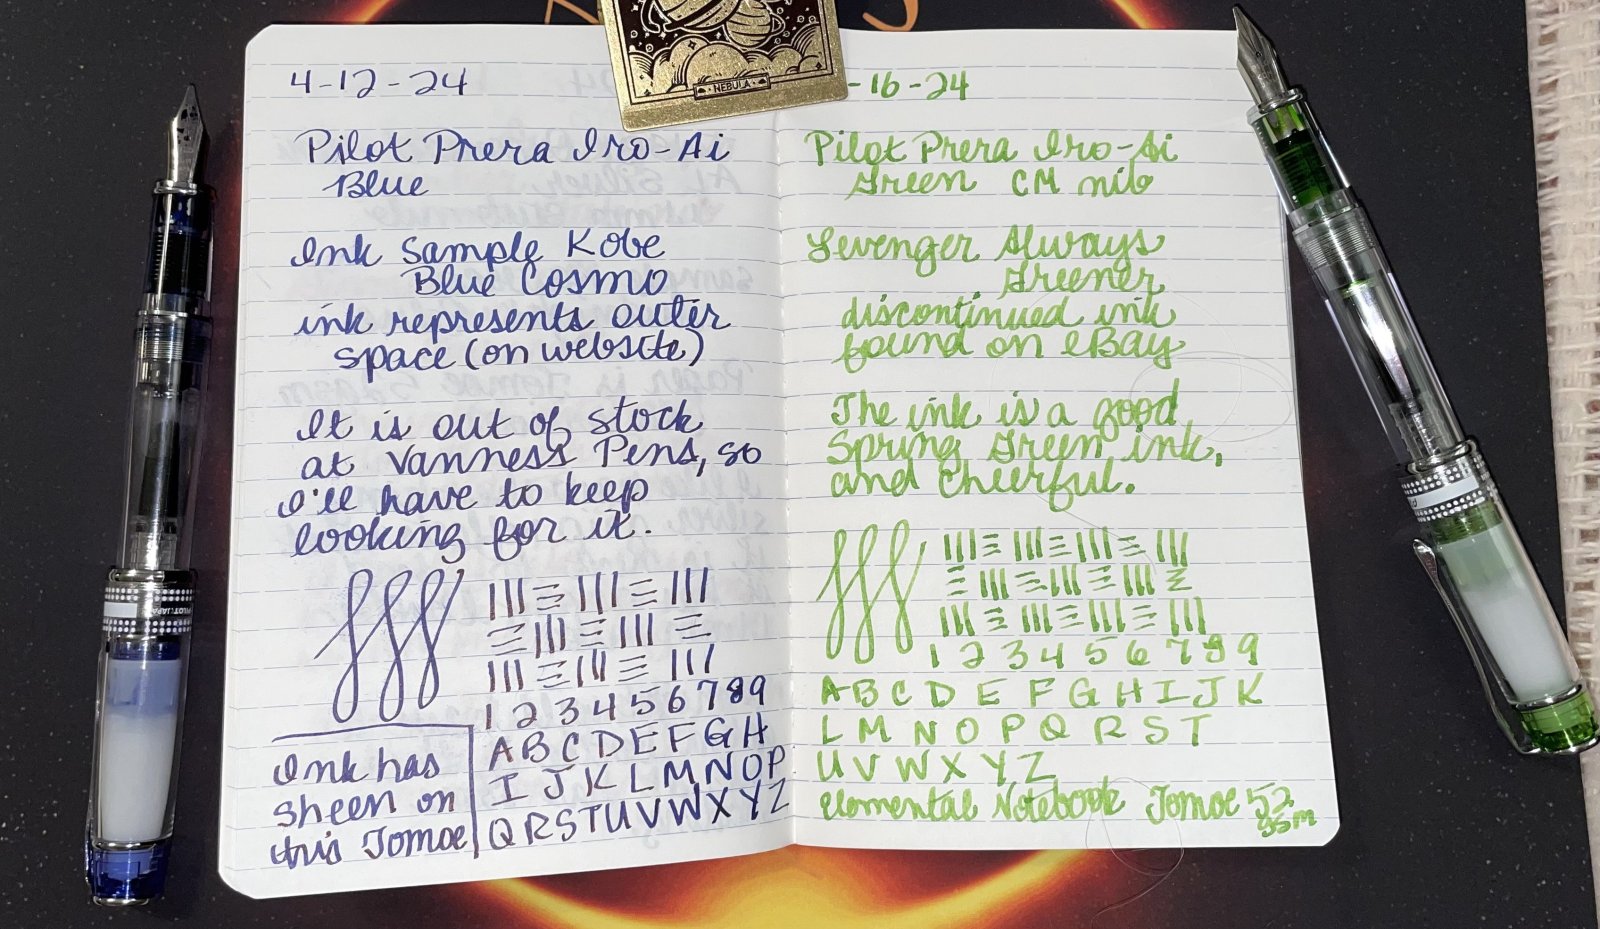 NEBULA
4-12-24
Pilot Prera Iro-Ai
Blue
Ink Sample Kobe
Blue Cosmo
ink represents outer
space (on website)
It is out of stock
at Vanness Pens, so
I'll have to keep
looking for it.
fff
1 2 3 4 5 6 7 8 9
A B C D E F G H
I J K L M N O P
Q R S T U V W X Y Z
Ink has
sheen on
this Tomoe
-16-24
Pilot Prera Iro-Ai
Green CM nib
Levenger Always
Greener
discontinued ink
found on eBay
The ink is a good
Spring Green ink,
and cheerful.
fff
1 2 3 4 5 6 7 8 9
A B C D E F G H I J K
L M N O P Q R S T
U V W X Y Z
Elemental Notebook Tomoe 52
gsm
PILOT JAPAN